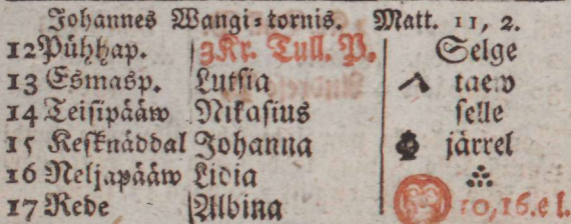 Johannes Wangi⸗tornis. Matt. 11, 2.
12 Pühhap. 3 Kr. Tull. P. Selge
13 Esmasp. Lutsia taew
14 Teisipääw Nikasius selle
15 Kesknäddal Johanna järrel
16 Neljapääw Lidia
17 Rede Albina 10, 16. e l.